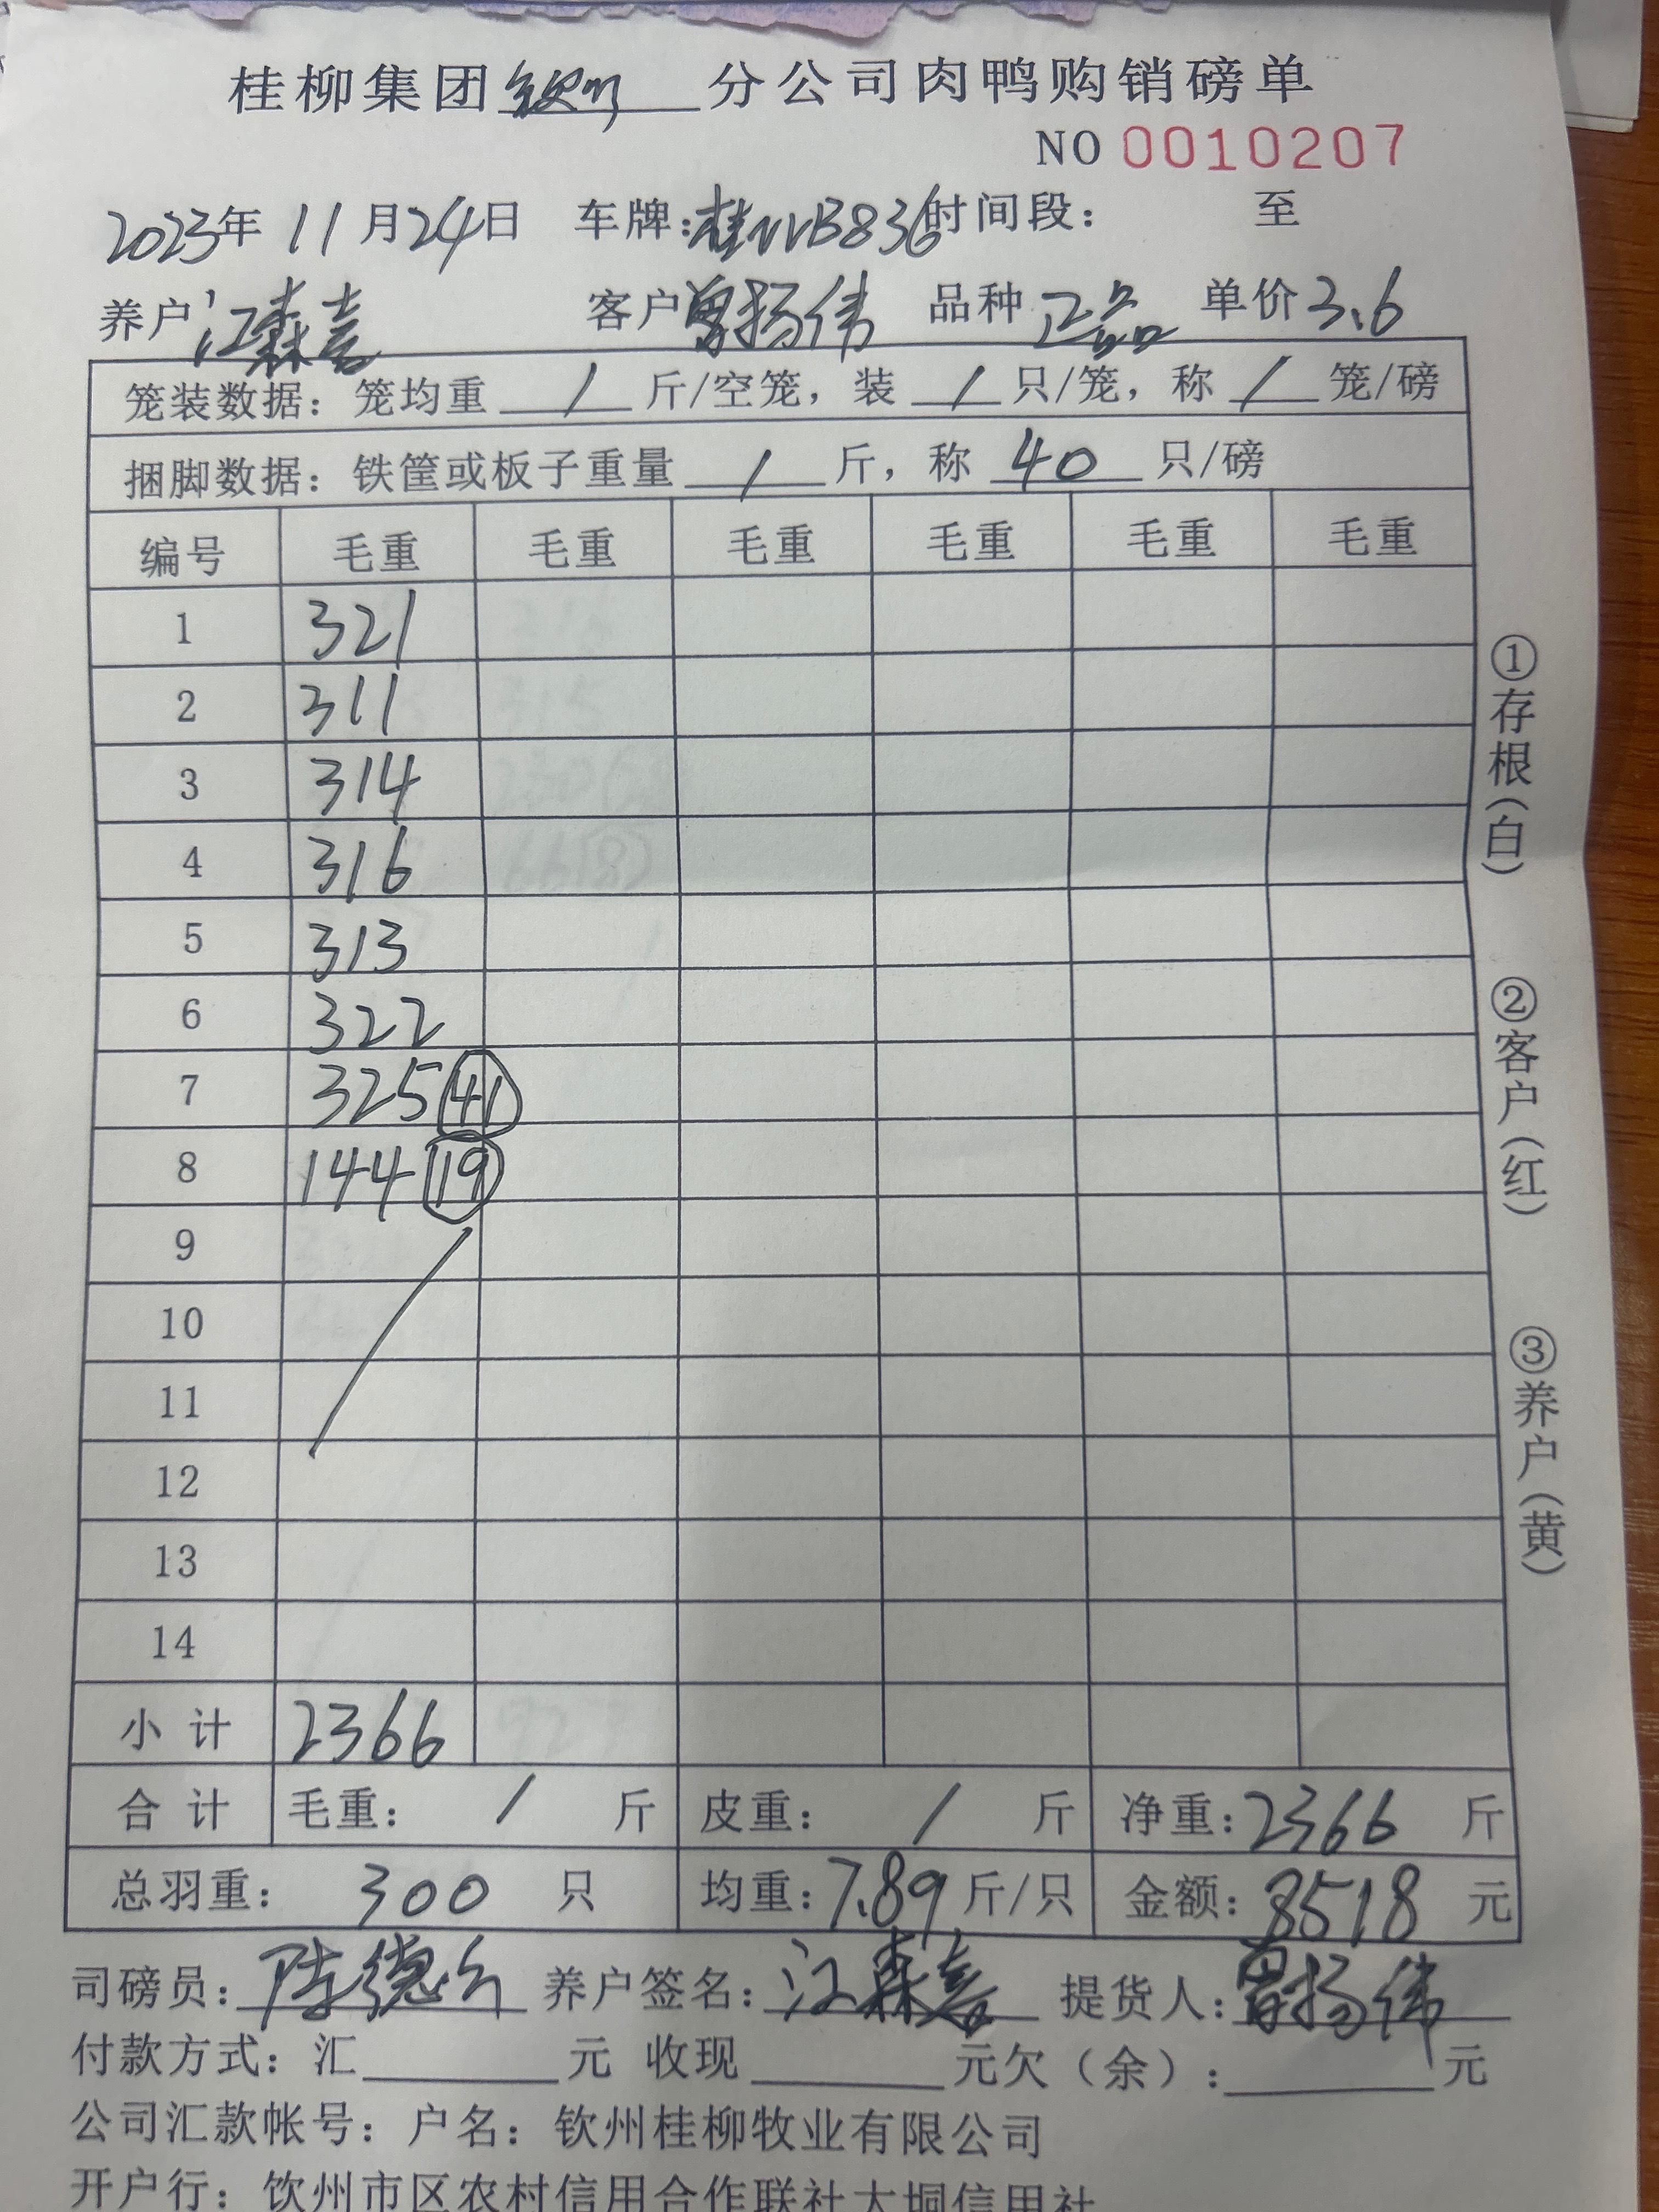 桂柳集团钦州分公司肉鸭购销磅单
NO 0010207
2023年 11月24日 车牌:桂NVB836时间段: 至
养户江森喜 客户曾扬伟 品种正品 单价3.6
笼装数据: 笼均重 / 斤/空笼, 装 / 只/笼, 称 / 笼/磅
捆脚数据: 铁筐或板子重量 / 斤, 称 40 只/磅
编号 毛重 毛重 毛重 毛重 毛重 毛重
1 321
2 311
3 314
4 316
5 313
6 322
7 325 41
8 144 19
9
10
11
12
13
14
小计 2366
合计 毛重: / 斤 皮重: / 斤 净重:2366 斤
总羽重: 300 只 均重:7.89斤/只 金额:8518元
司磅员: 陆德 养户签名:江森喜 提货人:曾扬伟
付款方式: 汇 元 收现 元欠(余): 元
公司汇款帐号: 户名: 钦州桂柳牧业有限公司
开户行: 钦州市区农村信用合作联社大垌信用社
①存根(白)
②客户(红)
③养户(黄)